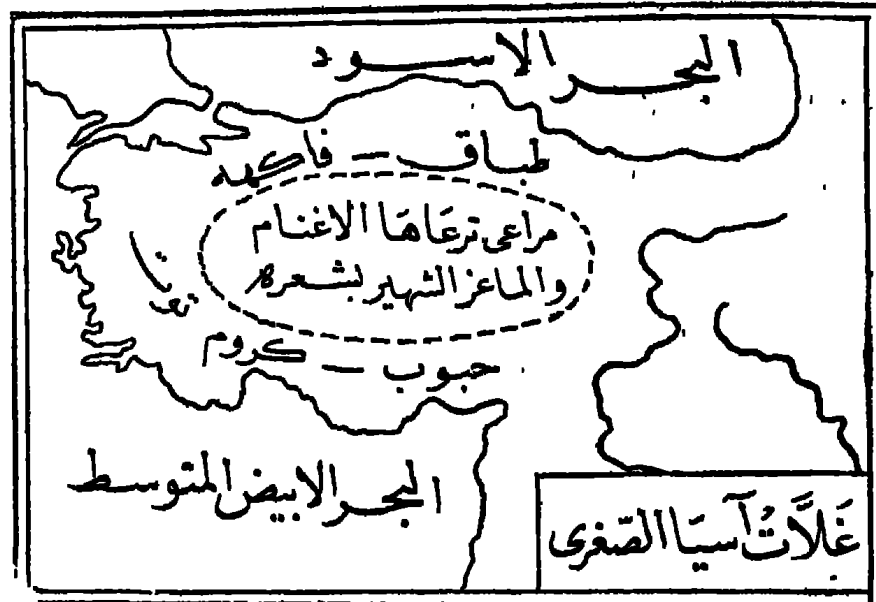 البحر الاسود
طباق — فاكهه
مراعى ترعَاهَا الاغنام
والماعز الشهير بشعره
حبوب — كروم
البحر الابيض المتوسط
غَلَّاتُ آسيَا الصّغرى